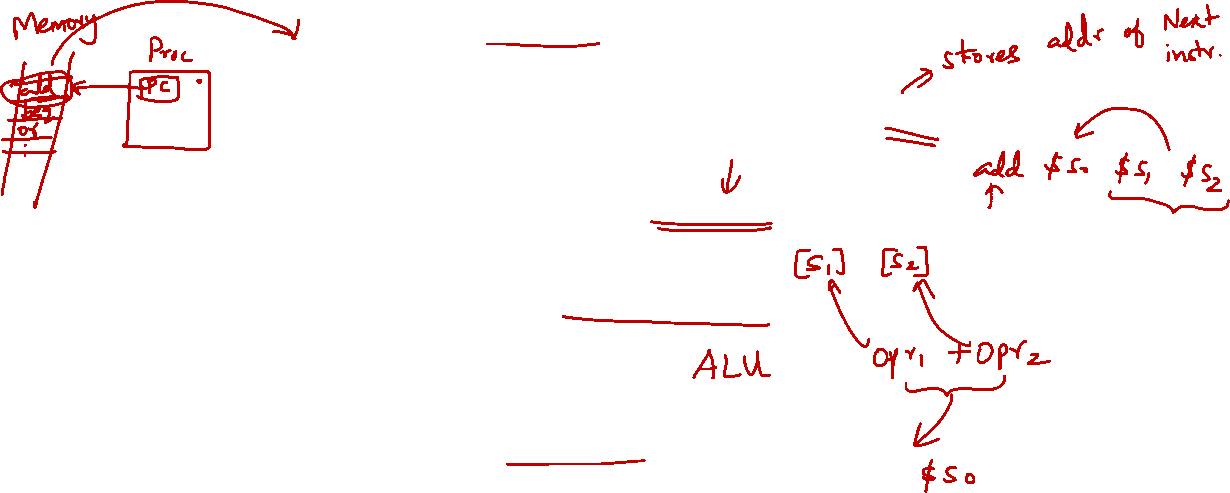 Memory
Proc
PC
add
beq
or
stores addr of Next
instr.
add $S0 $S1 $S2
[S1] [S2]
Opr1 + Opr2
ALU
$S0